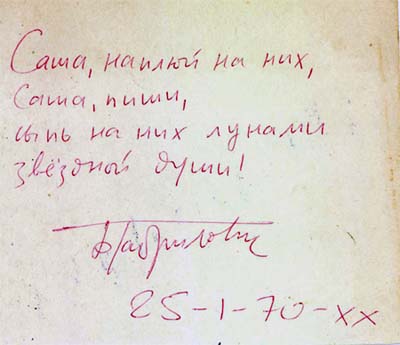 Саша, наплюй на них,
Саша, пиши,
сыпь на них лунами
звёздной души!
25-1-70-XX